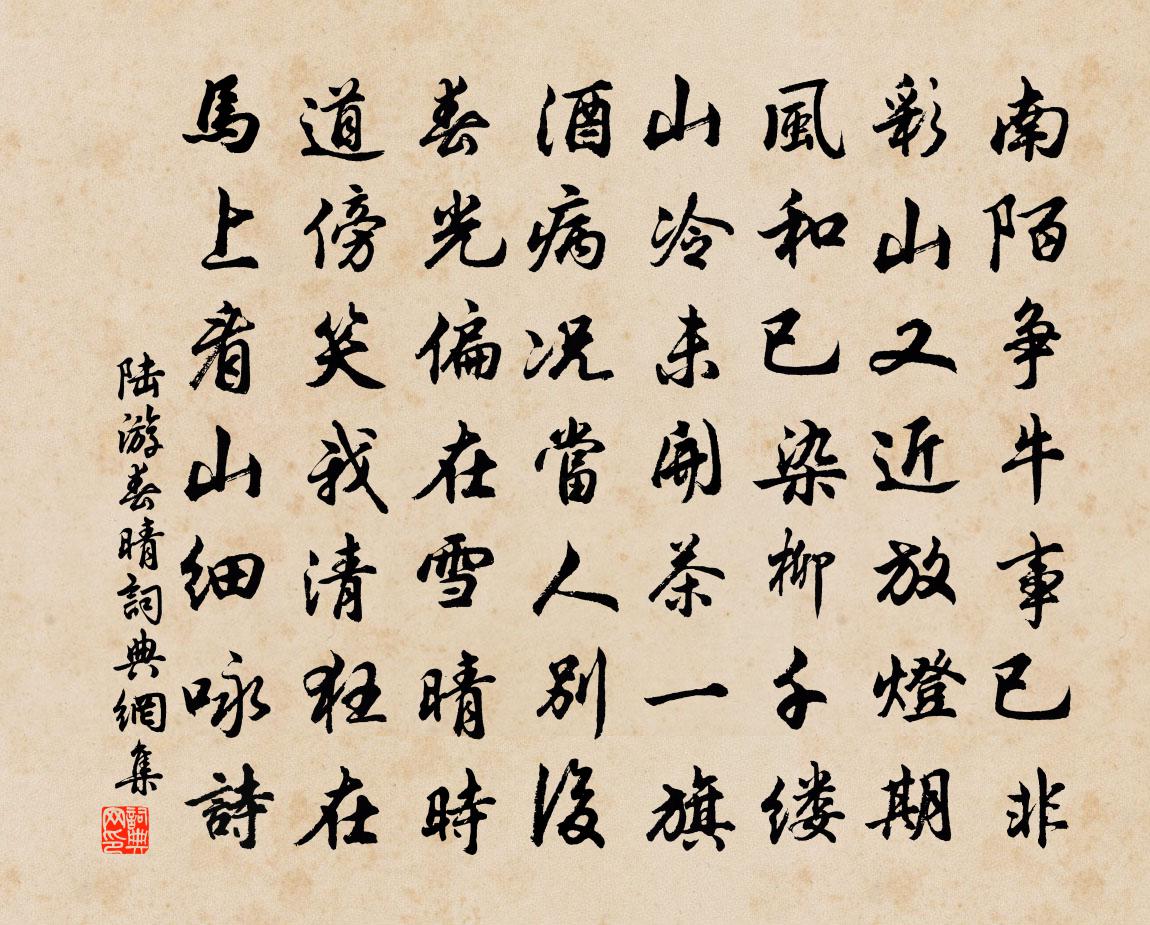 南陌争牛事已非
彩山又近放燈期
風和已染柳千缕
山冷未開茶一旗
酒病况當人別後
春光偏在雪晴時
道傍笑我清狂在
馬上看山细咏詩
陆游春晴詞典網集
詞典网印